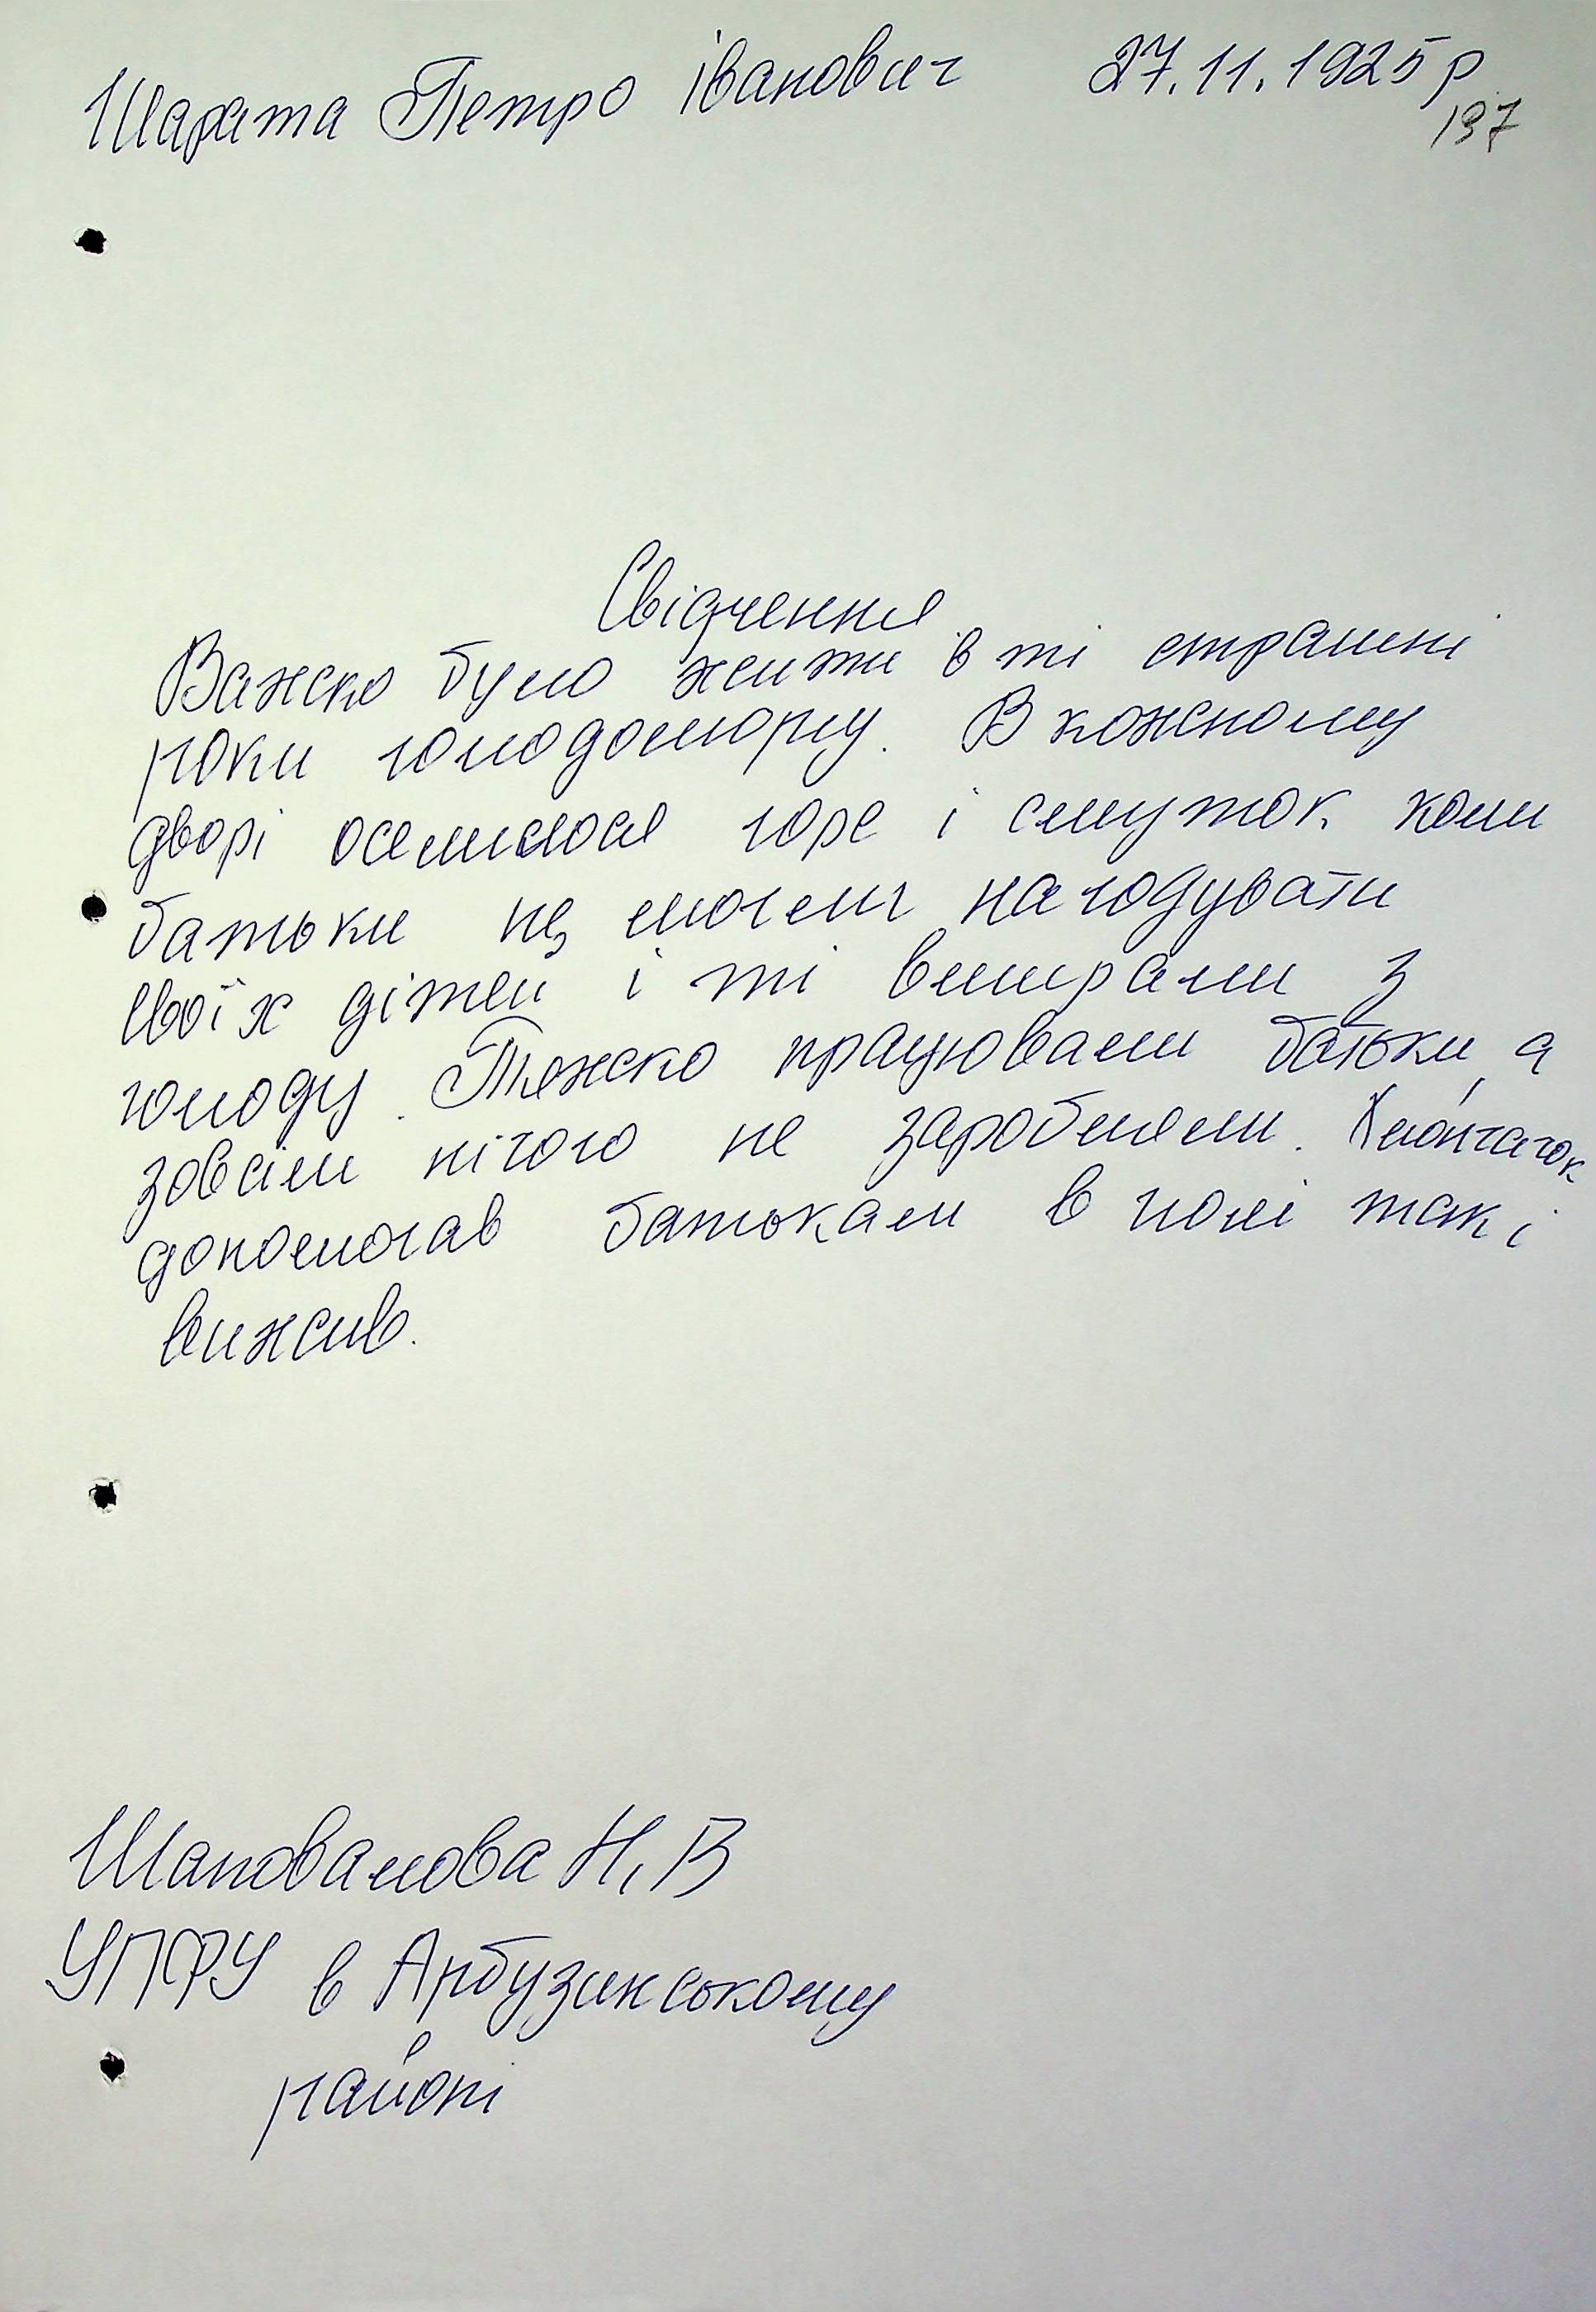 Шарата Петро Іванович 27.11.1925 р
197
Свідчення
Важко було жити в ті страшні
роки голодомору. В кожному
дворі оселилося горе і смуток коли
батьки не могли нагодувати
своїх дітей і ті вмирали з
голоду. Тяжко працювали батьки, а
зовсім нічого не заробляли. Хлопчачок
допомогав батькам в полі так і
вижив.
Шаповалова Н, В
УПФУ в Арбузинському
районі